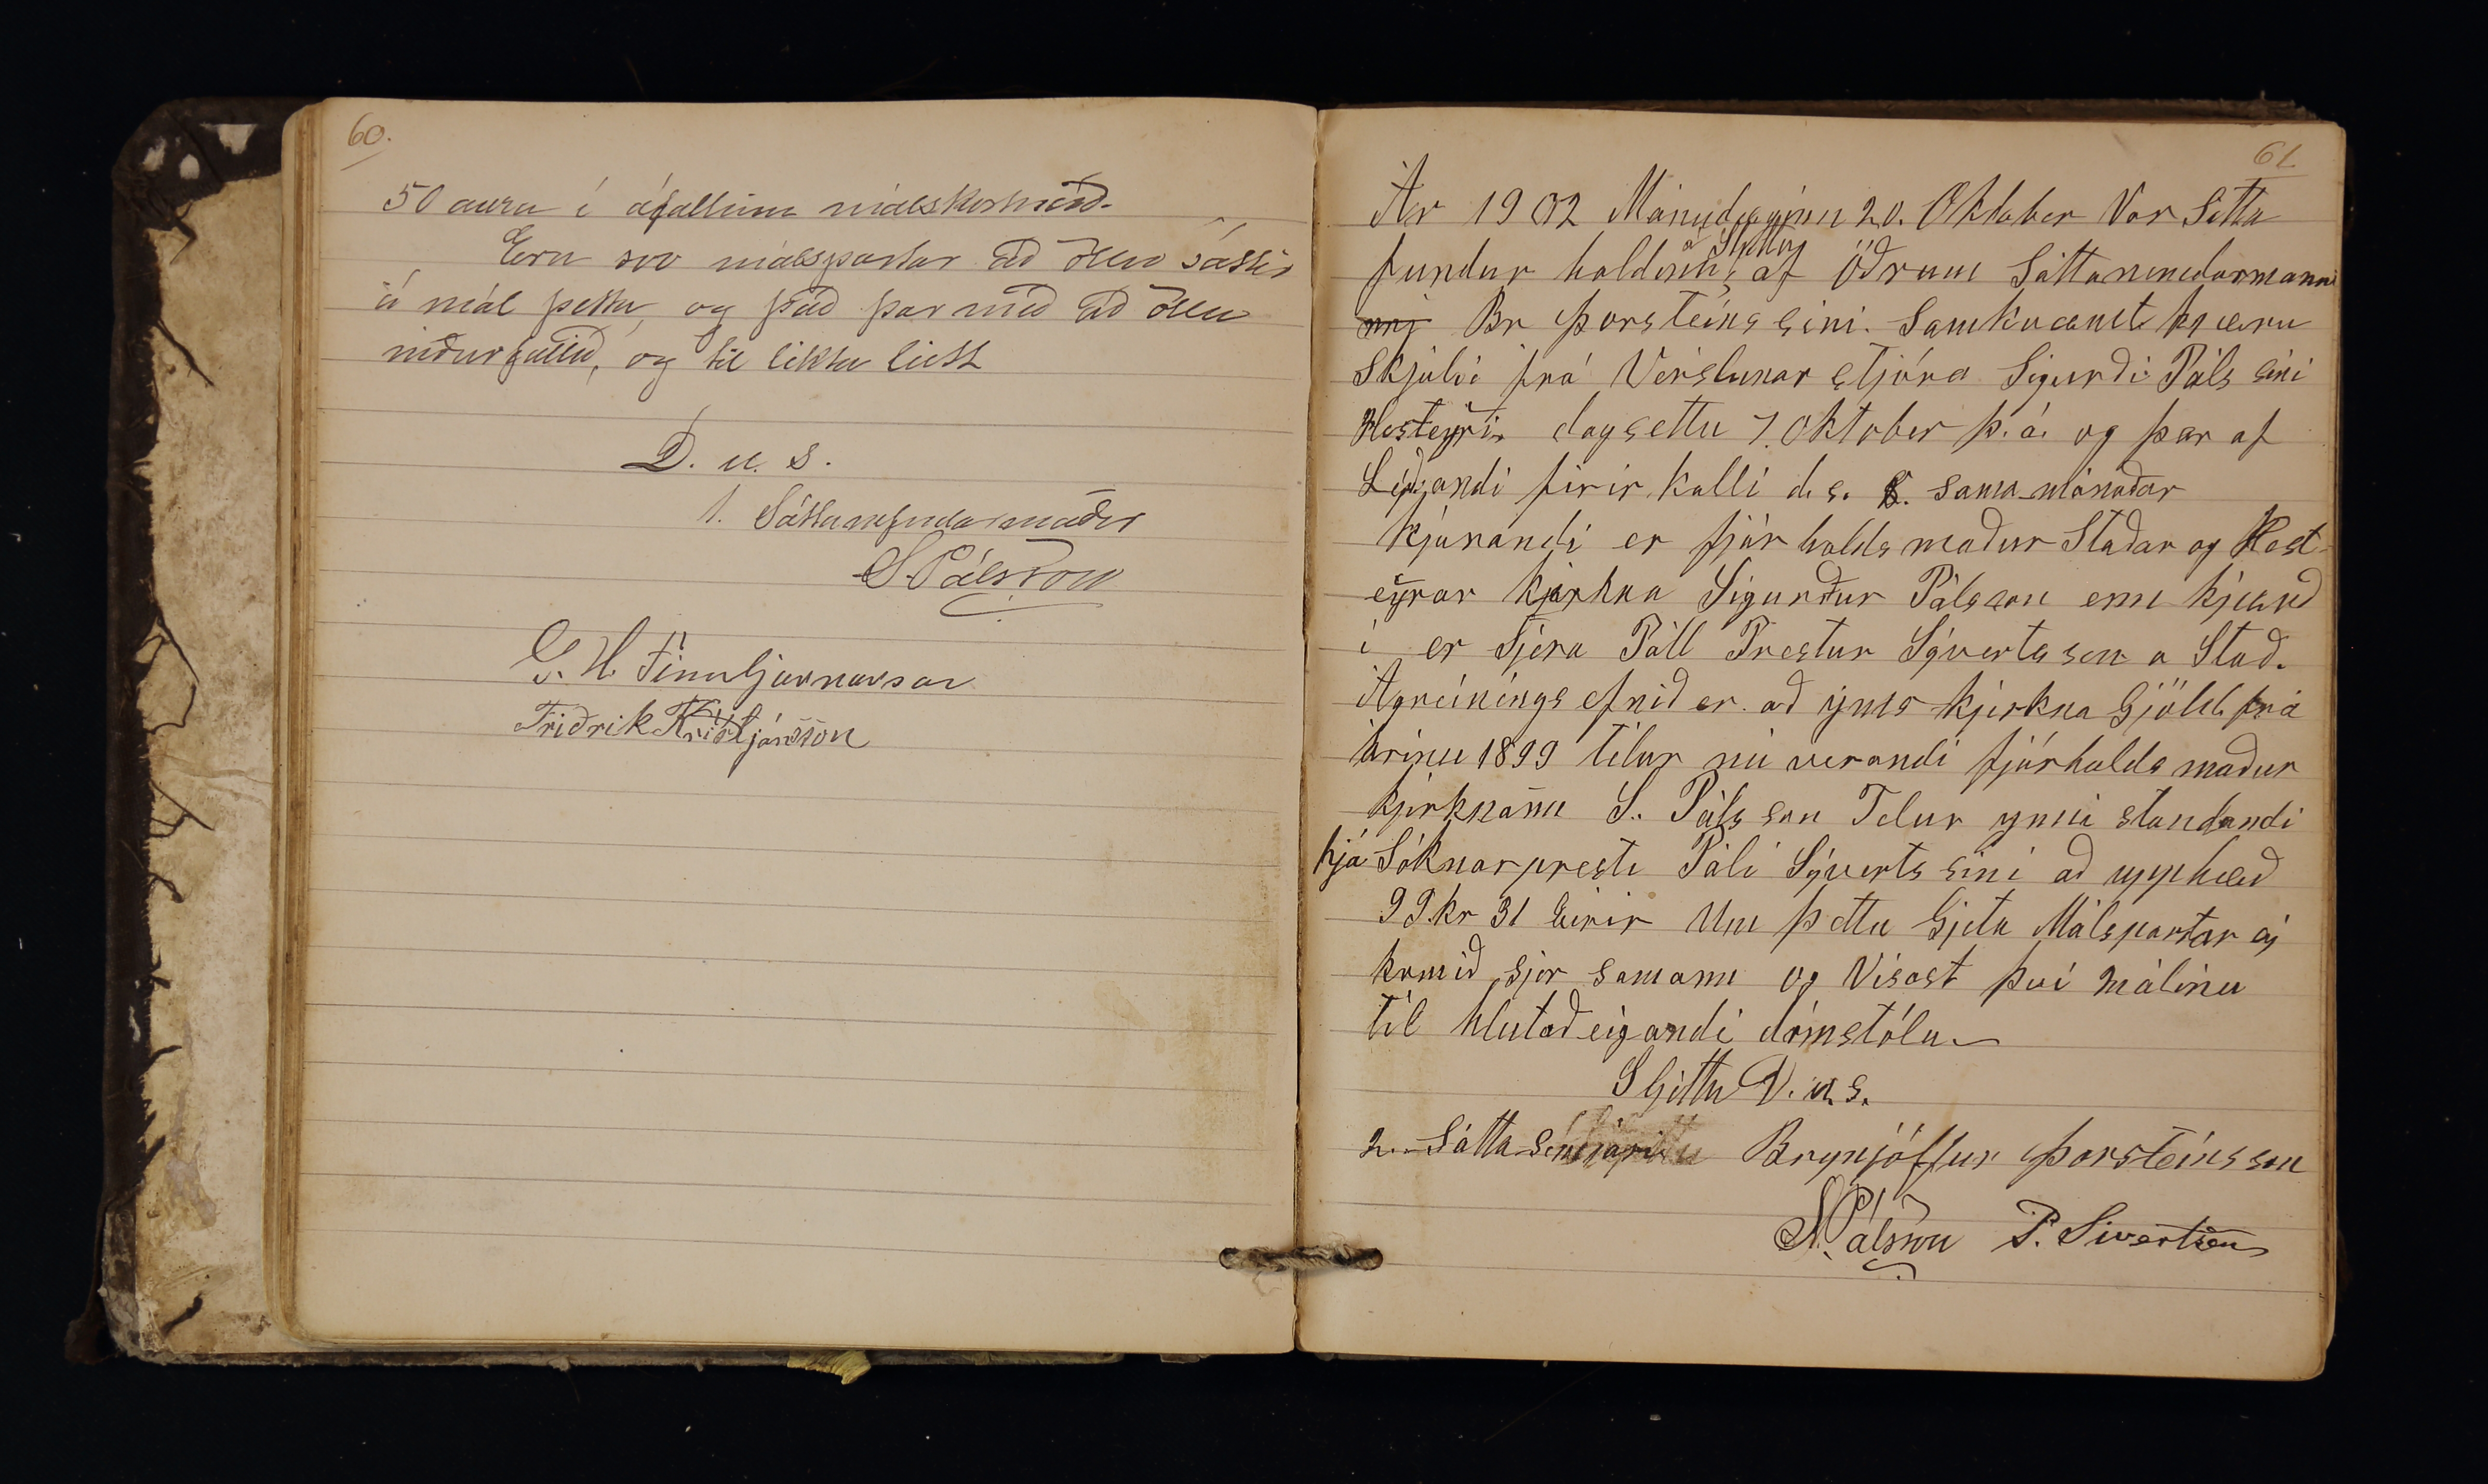 60.
50 aura í áföllnum málskostnað.
Eru svo málspartar að öllu sáttir
á mál þetta, og það þar með að öllu
niðurfallið, og til likta leitt
D. u. s.
1. Sáttanefndarmaður
S. Pálsson
G. H. Finnbjarnarson
Friðrik Kristjánsson
61
Ár 1902 Mánudaginn 20. Oktober Var Sátta
fundur haldinn, á Sljettu af Öðrum Sáttanemdarmanni
Br Þorsteinssini. Samkvæmt kjæru
skjali frá Verslunar stjóra Sigurði Páls sini
Hesteyri dagsettu 7. Oktober þ. á. og þar af
Leiðandi firir kalli d. s. 8. sama mánaðar
Kjærandi er fjár halds maður Staðar og Hest-
eyrar kjirkna Sigurður Pálsson enn kjærð
i er Sjera Páll Prestur Sývertsson a Stað.
Ágreinings efnið er að ýms kjirkna Gjöld frá
árinu 1899 tilur nú verandi fjárhalds maður
kjirknanna S. Páls son Telur ynni standandi
hjá Sóknar presti Páli Sýverts sini að upphæð
99 kr 31 Eirir Um þettu Gjeta Málspartar ej
komið sjer samann og Visast því málinu
til hlutaðeigandi dómstóla.
Sljettu D. u. s.
2. Sátta Semjari Brynjólfur Þorsteinsson
S. Pálsson P. Sivertsen